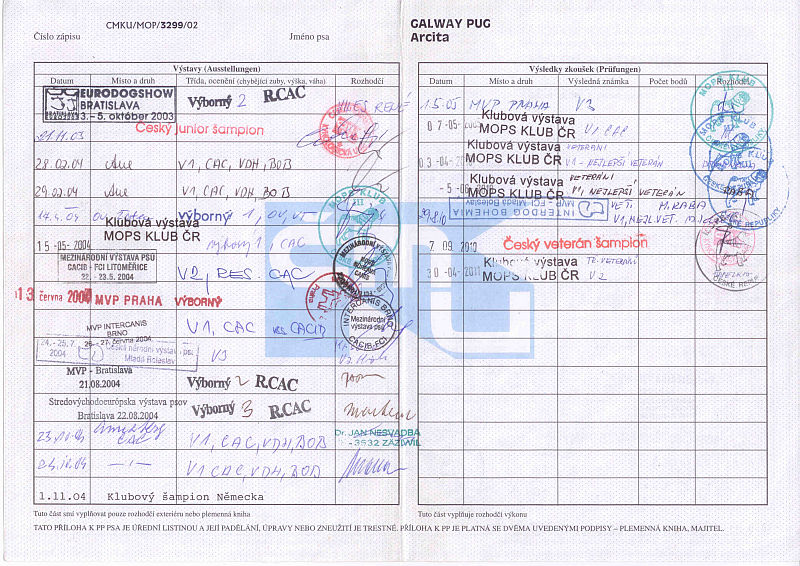 CMKU/MOP/3299/02
GALWAY PUG
Číslo zápisu
Jméno psa
Arcita
Výstavy (Ausstellungen)
Datum
Místo a druh
Třída, ocenění (chybějící zuby, výška, váha)
Rozhodčí
EURODOGSHOW
BRATISLAVA
3.- 5. október 2003
Výborný 2 R.CAC
Český junior šampion
28.02.04
V1, CAC, VDH, BOB
29.02.04
V1, CAC, VDH BOB
Klubová výstava
MOPS KLUB ČR
výborný 1,
15 -05- 2004
výborný 1, CAC
MOPS KLUB
III
MEZINÁRODNÍ VÝSTAVA PSŮ
CACIB - FCI LITOMĚŘICE
22. - 23.5. 2004
V2, RES. CAC
13 června 2004 MVP PRAHA VÝBORNÝ
Praha
MVP INTERCANIS
BRNO
26.- 27. června 2004
V1, CAC res CACIB
INTERCANIS BRNO
Mezinárodní
výstava psů
CACIB-FCI
24.- 25.7.
2004
národní výstava psů
Mladá Boleslav
V3
MVP - Bratislava
21.08.2004
Výborný 2 R.CAC
Stredovýchodoeurópska výstava psov
Bratislava 22.08.2004
Výborný 3 R.CAC
23.10.04
CAC
V1, CAC, VDH, BOB
Dr. JAN NESVADBA
- 3532 ZÄZIWIL
24.10.04
V1 CAC, VDH, BOB
1.11.04 Klubový šampion Německa
Tuto část smí vyplňovat pouze rozhodčí exteriéru nebo plemenná kniha
Výsledky zkoušek (Prüfungen)
Datum
Místo a druh
Výsledná známka
Počet bodů
Rozhodčí
1.5.05 MVP PRAHA V3
MOPS KLUB
III
07 -05-
Klubová výstava
MOPS KLUB ČR
V1 CAC
03 -04-
Klubová výstava
MOPS KLUB ČR
VETERÁNI
V1 - NEJLEPŠÍ VETERÁN
-5 -06-
Klubová výstava
MOPS KLUB ČR
VETERÁNI
V1, NEJLEPŠÍ VETERÁN
INTERDOG BOHEMIA
MVP - FCI Mladá Boleslav
VETI
M. RABA
7 09 2010
Český veterán šampion
30 -04- 2011
Klubová výstava
MOPS KLUB ČR
TR. VETERÁNI
V2
Tuto část vyplňuje rozhodčí výkonu
TATO PŘÍLOHA K PP PSA JE ÚŘEDNÍ LISTINOU A JEJÍ PADĚLÁNÍ, ÚPRAVY NEBO ZNEUŽITÍ JE TRESTNÉ. PŘÍLOHA K PP JE PLATNÁ SE DVĚMA UVEDENÝMI PODPISY – PLEMENNÁ KNIHA, MAJITEL.